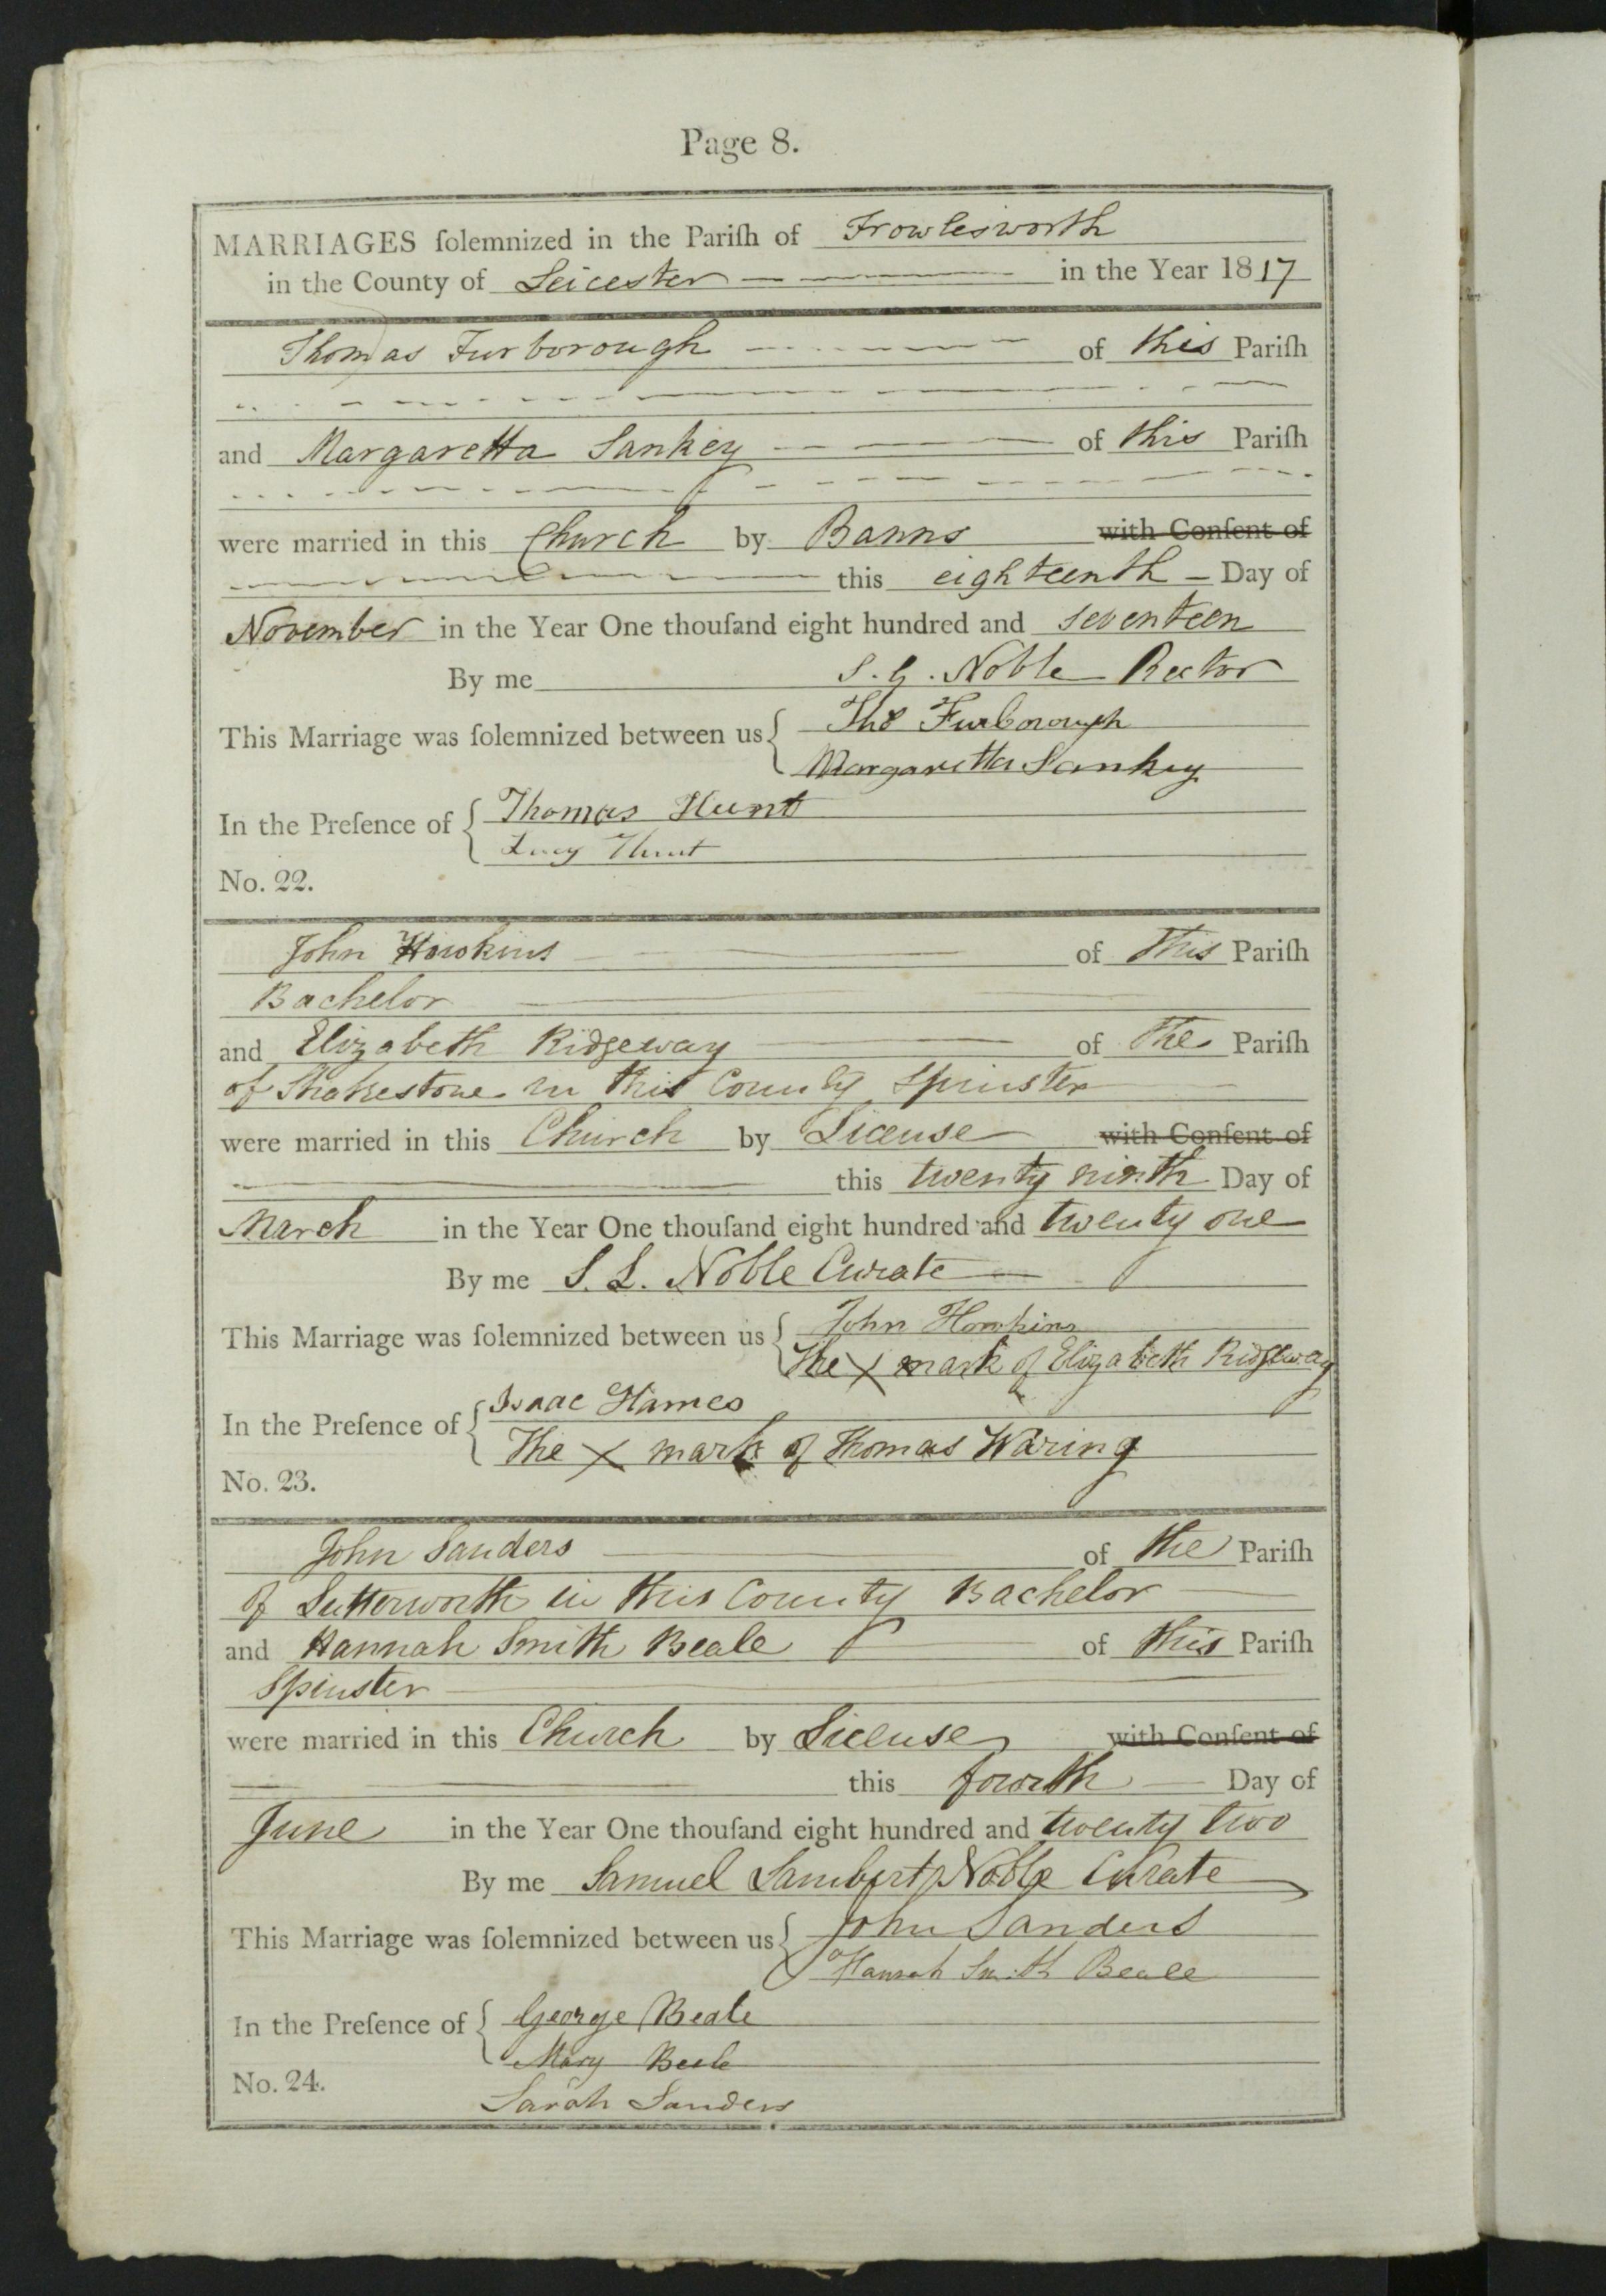 Page 8.
MARRIAGES ſolemnized in the Pariſh of Frowlesworth
in the County of Leicester in the Year 1817
Thomas Furborough of this Pariſh
and Margaretta Sankey of this Pariſh
were married in this Church by Banns with Conſent of
this eighteenth Day of
November in the Year One thouſand eight hundred and seventeen
By me S. G. Noble Rector
This Marriage was ſolemnized between us { Thos Furborough
Margaretta Sankey
In the Preſence of { Thomas Hunt
Lucy Hunt
No. 22.
John Howkins of this Pariſh
Bachelor
and Elizabeth Ridgeway of the Pariſh
of Shakestone in this County Spinster
were married in this Church by License with Conſent of
this twenty ninth Day of
March in the Year One thouſand eight hundred and twenty one
By me S. L. Noble Curate
This Marriage was ſolemnized between us { John Howkins
The X mark of Elizabeth Ridgeway
In the Preſence of { Isaac Hames
The X mark of Thomas Waring
No. 23.
John Sanders of the Pariſh
of Lutterworth in this County Bachelor
and Hannah Smith Beale of this Pariſh
Spinster
were married in this Church by License with Conſent of
this fourth Day of
June in the Year One thouſand eight hundred and twenty two
By me Samuel Lambert Noble Curate
This Marriage was ſolemnized between us { John Sanders
Hannah Smith Beale
In the Preſence of { George Beale
Mary Beale
No. 24.
Sarah Sanders